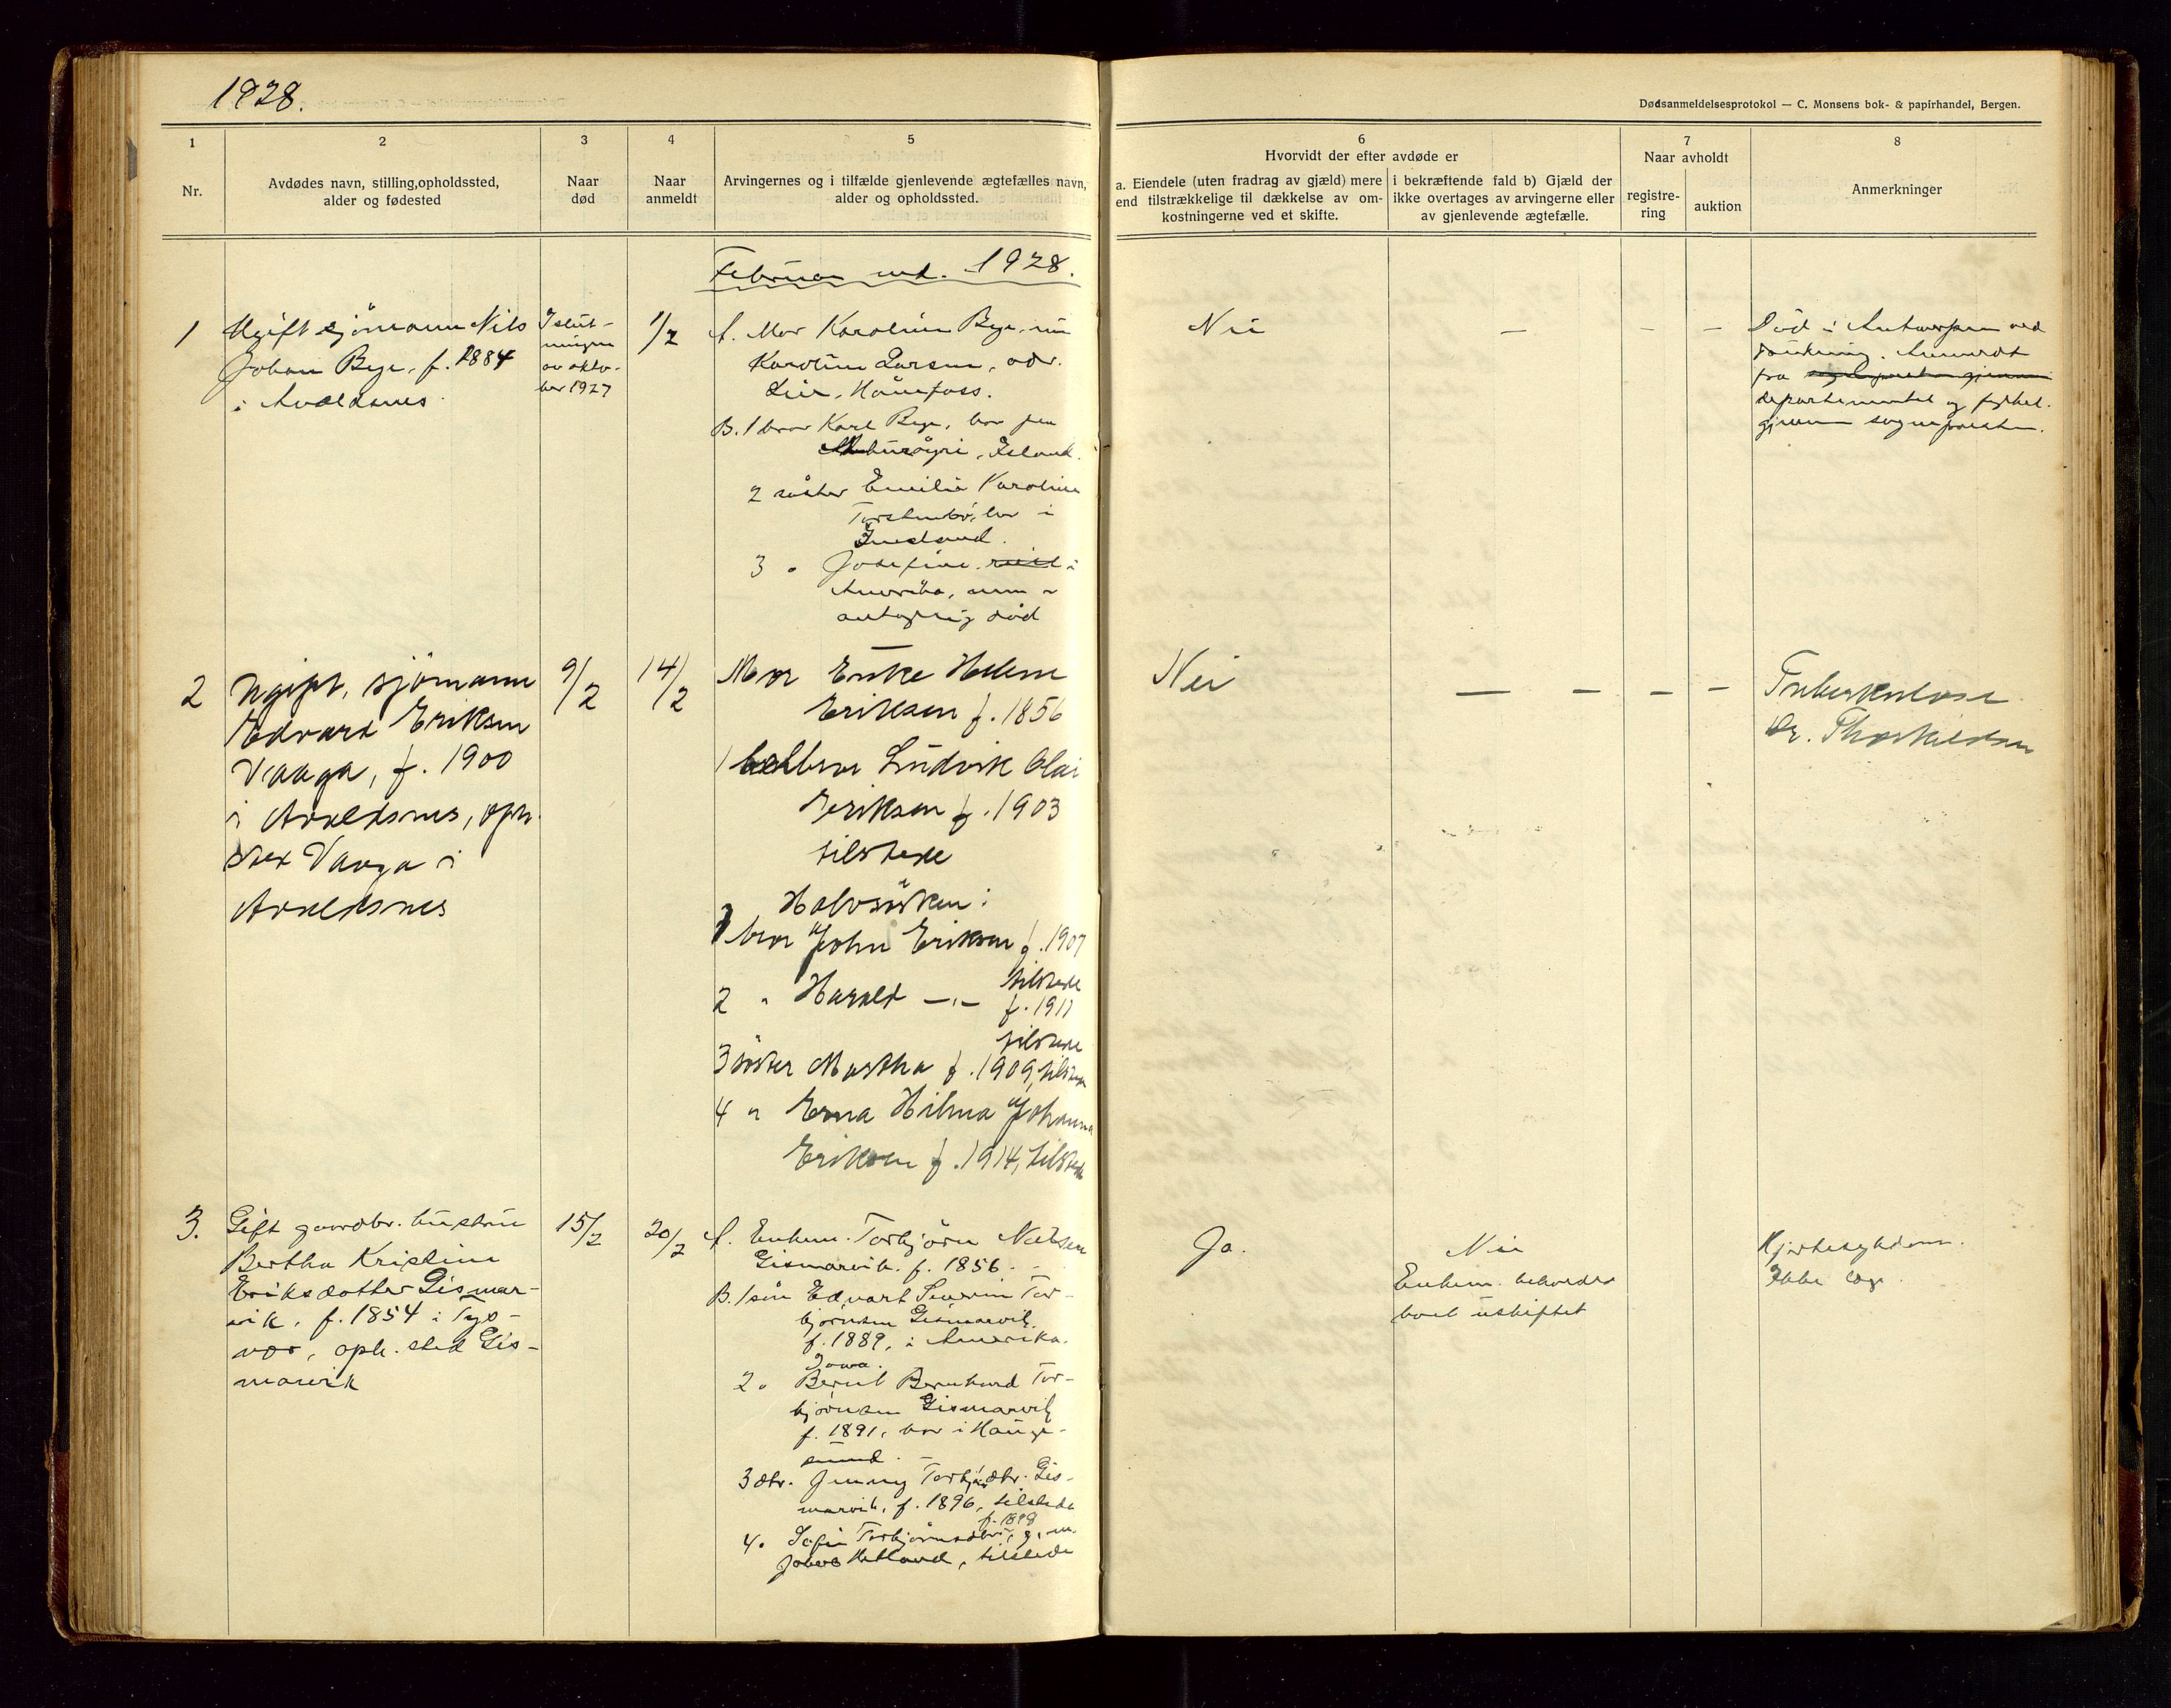 1928.
Dødsanmeldelsesprotokol — C. Monsens bok- & papirhandel, Bergen.
1
2
3
4
5
6
7
8
Nr.
Avdødes navn, stilling, opholdssted,
alder og fødested
Naar
død
Naar
anmeldt
Arvingernes og i tilfælde gjenlevende ægtefælles navn,
alder og opholdssted.
Hvorvidt der efter avdøde er
a. Eiendele (uten fradrag av gjæld) mere
end tilstrækkelige til dækkelse av om-
kostningerne ved et skifte.
i bekræftende fald b) Gjæld der
ikke overtages av arvingerne eller
av gjenlevende ægtefælle.
Naar avholdt
registre-
ring
auktion
Anmerkninger
Februar md. 1928.
1
Ugift sjömann Nils
Johan Bye, f. 1884
i Avaldsnes.
I slut-
ningen
av okto-
ber 1927
1/2
A. Mor Karoline Bye, nu
Karoline Larsen, adr.
Lier, Hönefoss.
B. 1 bror Karl Bye, bor paa
Island.
2 söster Emilie Karoline
bor i
3 " Josefine i
Amerika, men
antagelig död
Nei
—
—
—
Död i Antwerpen ved
drukning. Anmeldt
fra
departementet og fylket.
gjennem sognepresten.
2
Ugift, sjömann
Edvard Eriksen
Vaaga, f. 1900
i Avaldsnes, oph.
sted Vaaga i
Avaldsnes
9/2
14/2
Mor Helene
Eriksen f. 1856
1 bror Ludvik Olai
Eriksen f. 1903
tilstede
Halvsösken:
1 bror John Eriksen f. 1907
tilstede
2 " Harald —"— f. 1911
tilstede
3 söster Martha f. 1909, tilstede
4 " Erna Hilma Johanna
Eriksen f. 1914, tilstede
Nei
— — — —
Tuberkulose
Dr. Thorkildsen
3.
Gift gaardbr. hustru
Bertha Kristine
Eriksdotter Gismar-
vik, f. 1854 i Tys-
vær, oph. sted Gis-
marvik
15/2
20/2
A. Enkem. Torbjörn Nilsen
Gismarvik. f. 1856.
B. 1 sön Edvart Severin Tor-
björnsen Gismarvik
f. 1889, i Amerika.
Iowa.
2 " Bernhard Tor-
björnsen Gismarvik
f. 1891, bor i Hauge-
sund.
3 dtr. Jenny Torbj. dtr. Gis-
marvik, f. 1896, tilstede
f. 1898
4 " Sofie Torbjörnsdtr., g. m.
Hetland, tilstede
Ja.
Nei
Enkem. beholder
boet uskiftet
Hjertesykdom.
Ikke læge